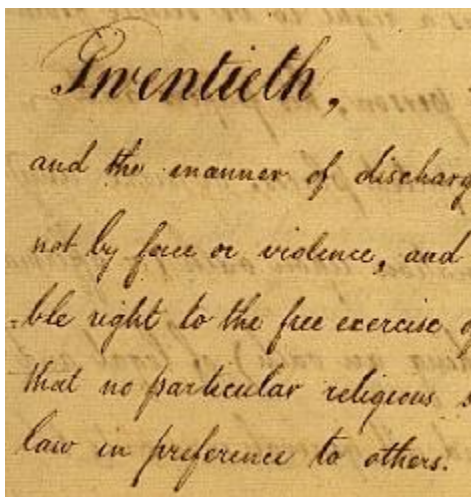 Twentieth,
and the manner of discharg
not by force or violence, and
ble right to the free exercise
that no particular religious s
law in preference to others.